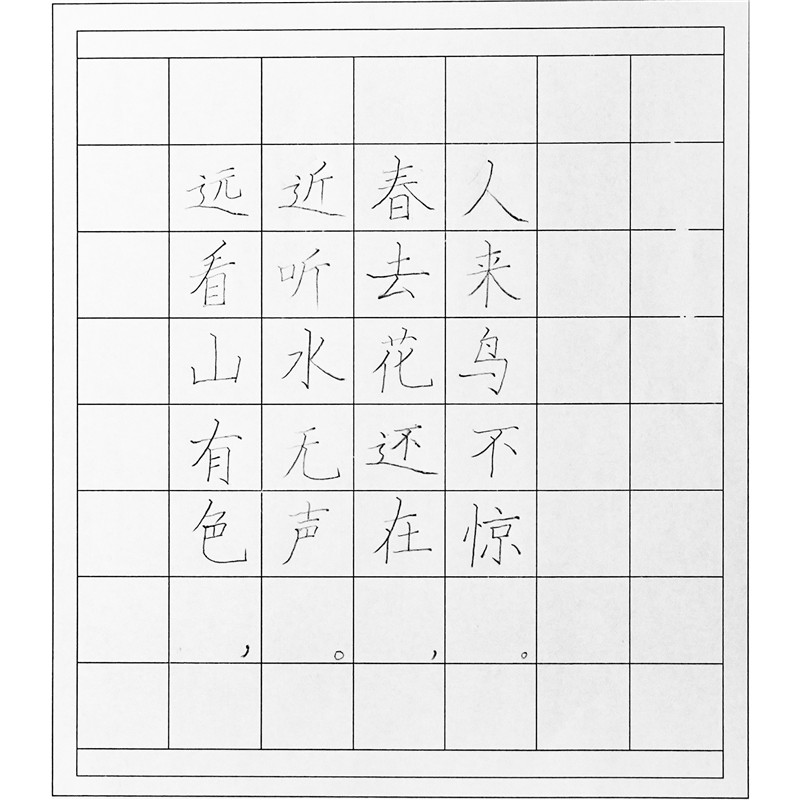 远看山有色，
近听水无声。
春去花还在，
人来鸟不惊。